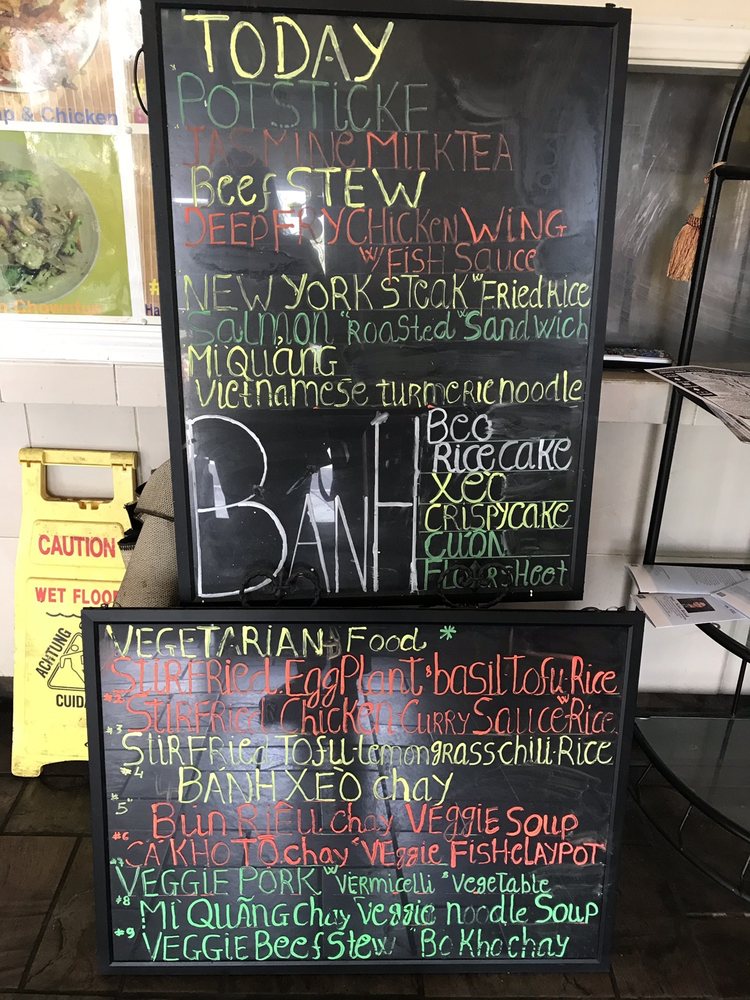 TODAY
POTSTICKE
JASMINE MILKTEA
Beef STEW
DEEPFRY CHICKEN WING
W/ FISH Sauce
NEW YORK STEAK W FRied RICE
Salmon "Roasted" Sandwich
MÌ QUẢNG
Vietnamese turmeric noodle
BÁNH
Beo
RICE CAKE
XEO
CRISPYCAKE
CUON
FLOUR SHeet
p & Chicken
CAUTION
WET FLOOR
ACHTUNG
CUIDA
VEGETARIAN Food *
STIRFRied EggPlant & basil Tofu Rice
#2 STIRFRied Chicken CURRY SAUCE W Rice
#3 STIRFRied TOFU lemongrass chili Rice
#4 BÁNH XEO chay
#5 Bun RIÊU chay VEggiE SOUP
#6 CÁ KHO TỘ chay "VEggie FISH CLAYPOT
#7 VEGGIE PORK W VERmicelli & vegetable
#8 MÌ QUÃNG Chay Veggie noodle SouP
#9 VEGGIE Beef Stew "Bo Kho chay